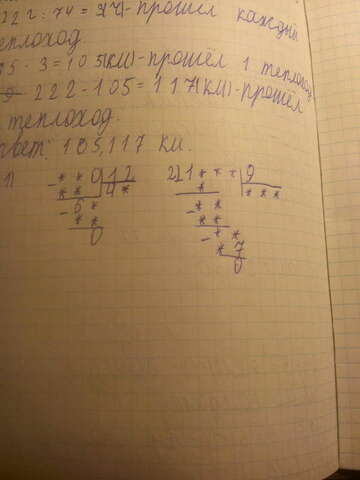 222 : 74 = 3(ч)-прошёл каждый
теплоход
35 · 3 = 105(км)-прошёл 1 теплоход
222-105=117(км)-прошёл
теплоход.
ответ: 105,117 км.
1) - * * 0 | 12
* * | 4 *
- 6 *
* *
0
2) 1 * * * | 9
* | * * *
- * *
* *
- * *
* 7
0